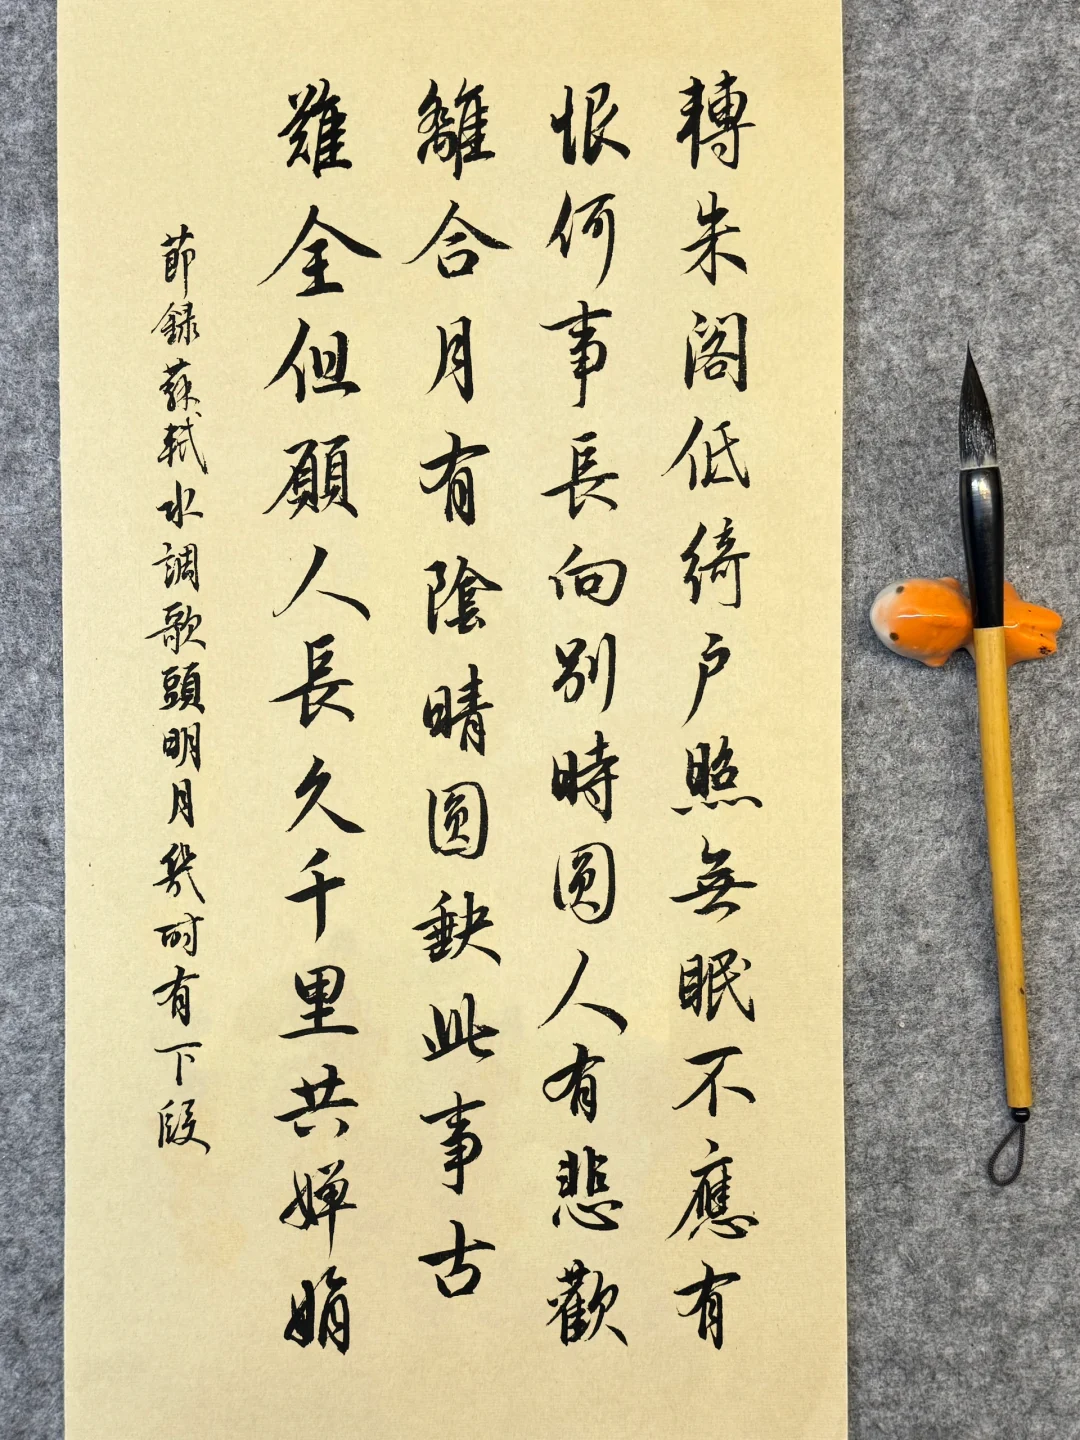 轉朱阁低綺户照無眠不應有
恨何事長向别時圆人有悲歡
離合月有陰晴圆缺此事古
難全但願人長久千里共婵娟
節録蘇軾水調歌頭明月幾时有下段